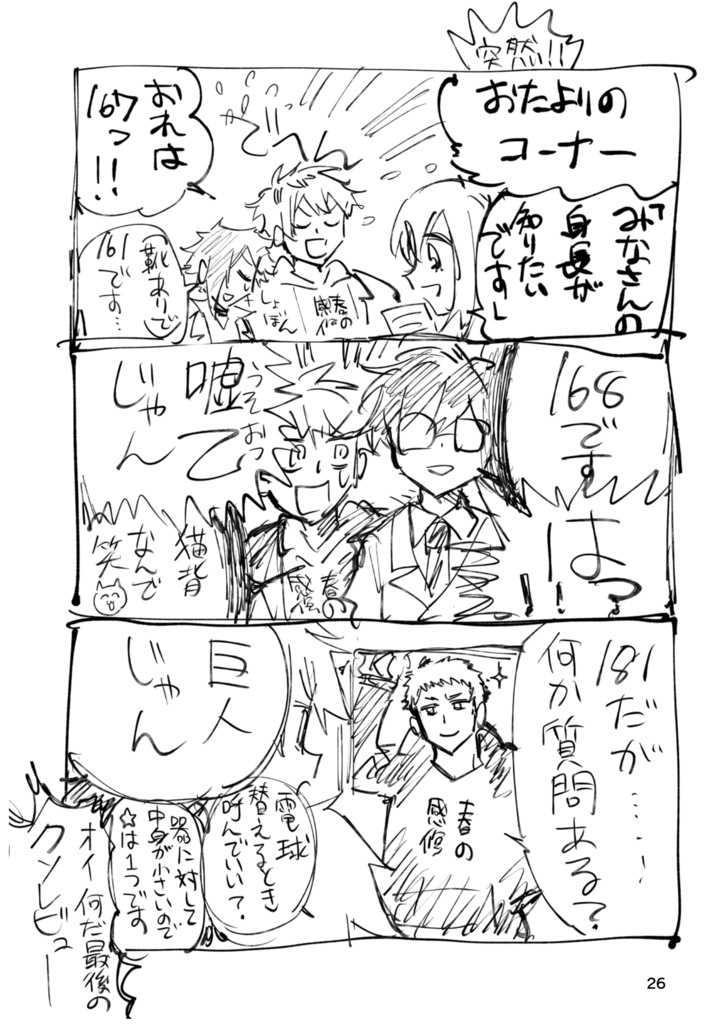 突然!!
おたよりの
コーナー
「みなさんの
身長が
知りたい
です」
おれは
167っ!!
春の
感修
しょ
ぼん
靴ありで
161
です…
168
です
は?
!!
嘘
うそ
おっ
て
じゃん
春の
感修
猫背
なんで
笑
181だが……
何か質問ある?
春の
感修
巨人
じゃん
電球
替えるとき
呼んでいい?
器に対して
中身が小さいので
☆は1つです
オイ 何だ最後の
クソレビュー
26